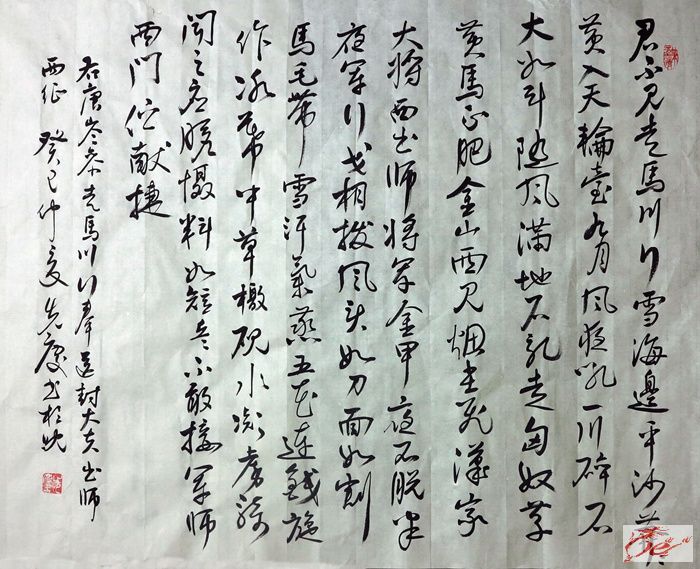 君不见走马川行雪海边平沙莽
黄入天轮臺九月风夜吼一川碎石
大如斗随风满地石乱走匈奴草
黄马正肥金山西见烟尘飞漢家
大将西出师将军金甲夜不脱半
夜军行戈相拨风头如刀面如割
馬毛带雪汗氣蒸五花连錢旋
作冰幕中草檄砚水凝虏骑
闻之应膽慑料知短兵不敢接军师
西门伫献捷
右唐岑参走馬川行奉送封大夫出师
西征 癸巳仲夏